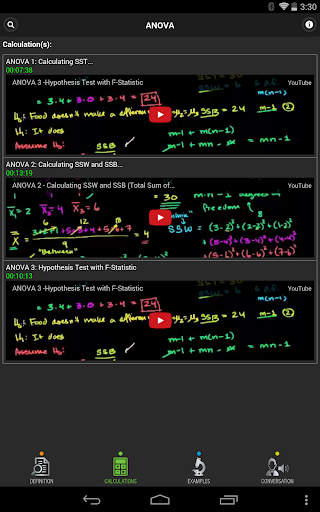 3:30
ANOVA
Calculation(s):
ANOVA 1: Calculating SST...
00:07:38
ANOVA 3 -Hypothesis Test with F-Statistic
YouTube
= 3.4 + 3.0 + 3.4 = 24
H₀: Food doesn't make a differen
SSB = 24
m-1 (2)
H₁: It does
m-1 + m(n-1)
Assume H₀:
SSB
ANOVA 2: Calculating SSW and SSB...
00:13:19
ANOVA 2 - Calculating SSW and SSB (Total Sum of...
YouTube
= 30
"Between"
SSW =
ANOVA 3: Hypothesis Test with F-Statistic
00:10:13
ANOVA 3 -Hypothesis Test with F-Statistic
YouTube
= 3.4 + 3.0 + 3.4 = 24
H₀: Food doesn't make a differen
SSB = 24
m-1 (2)
H₁: It does
m-1 + m(n-1)
Assume H₀:
SSB
DEFINITION
CALCULATIONS
EXAMPLES
CONVERSATION